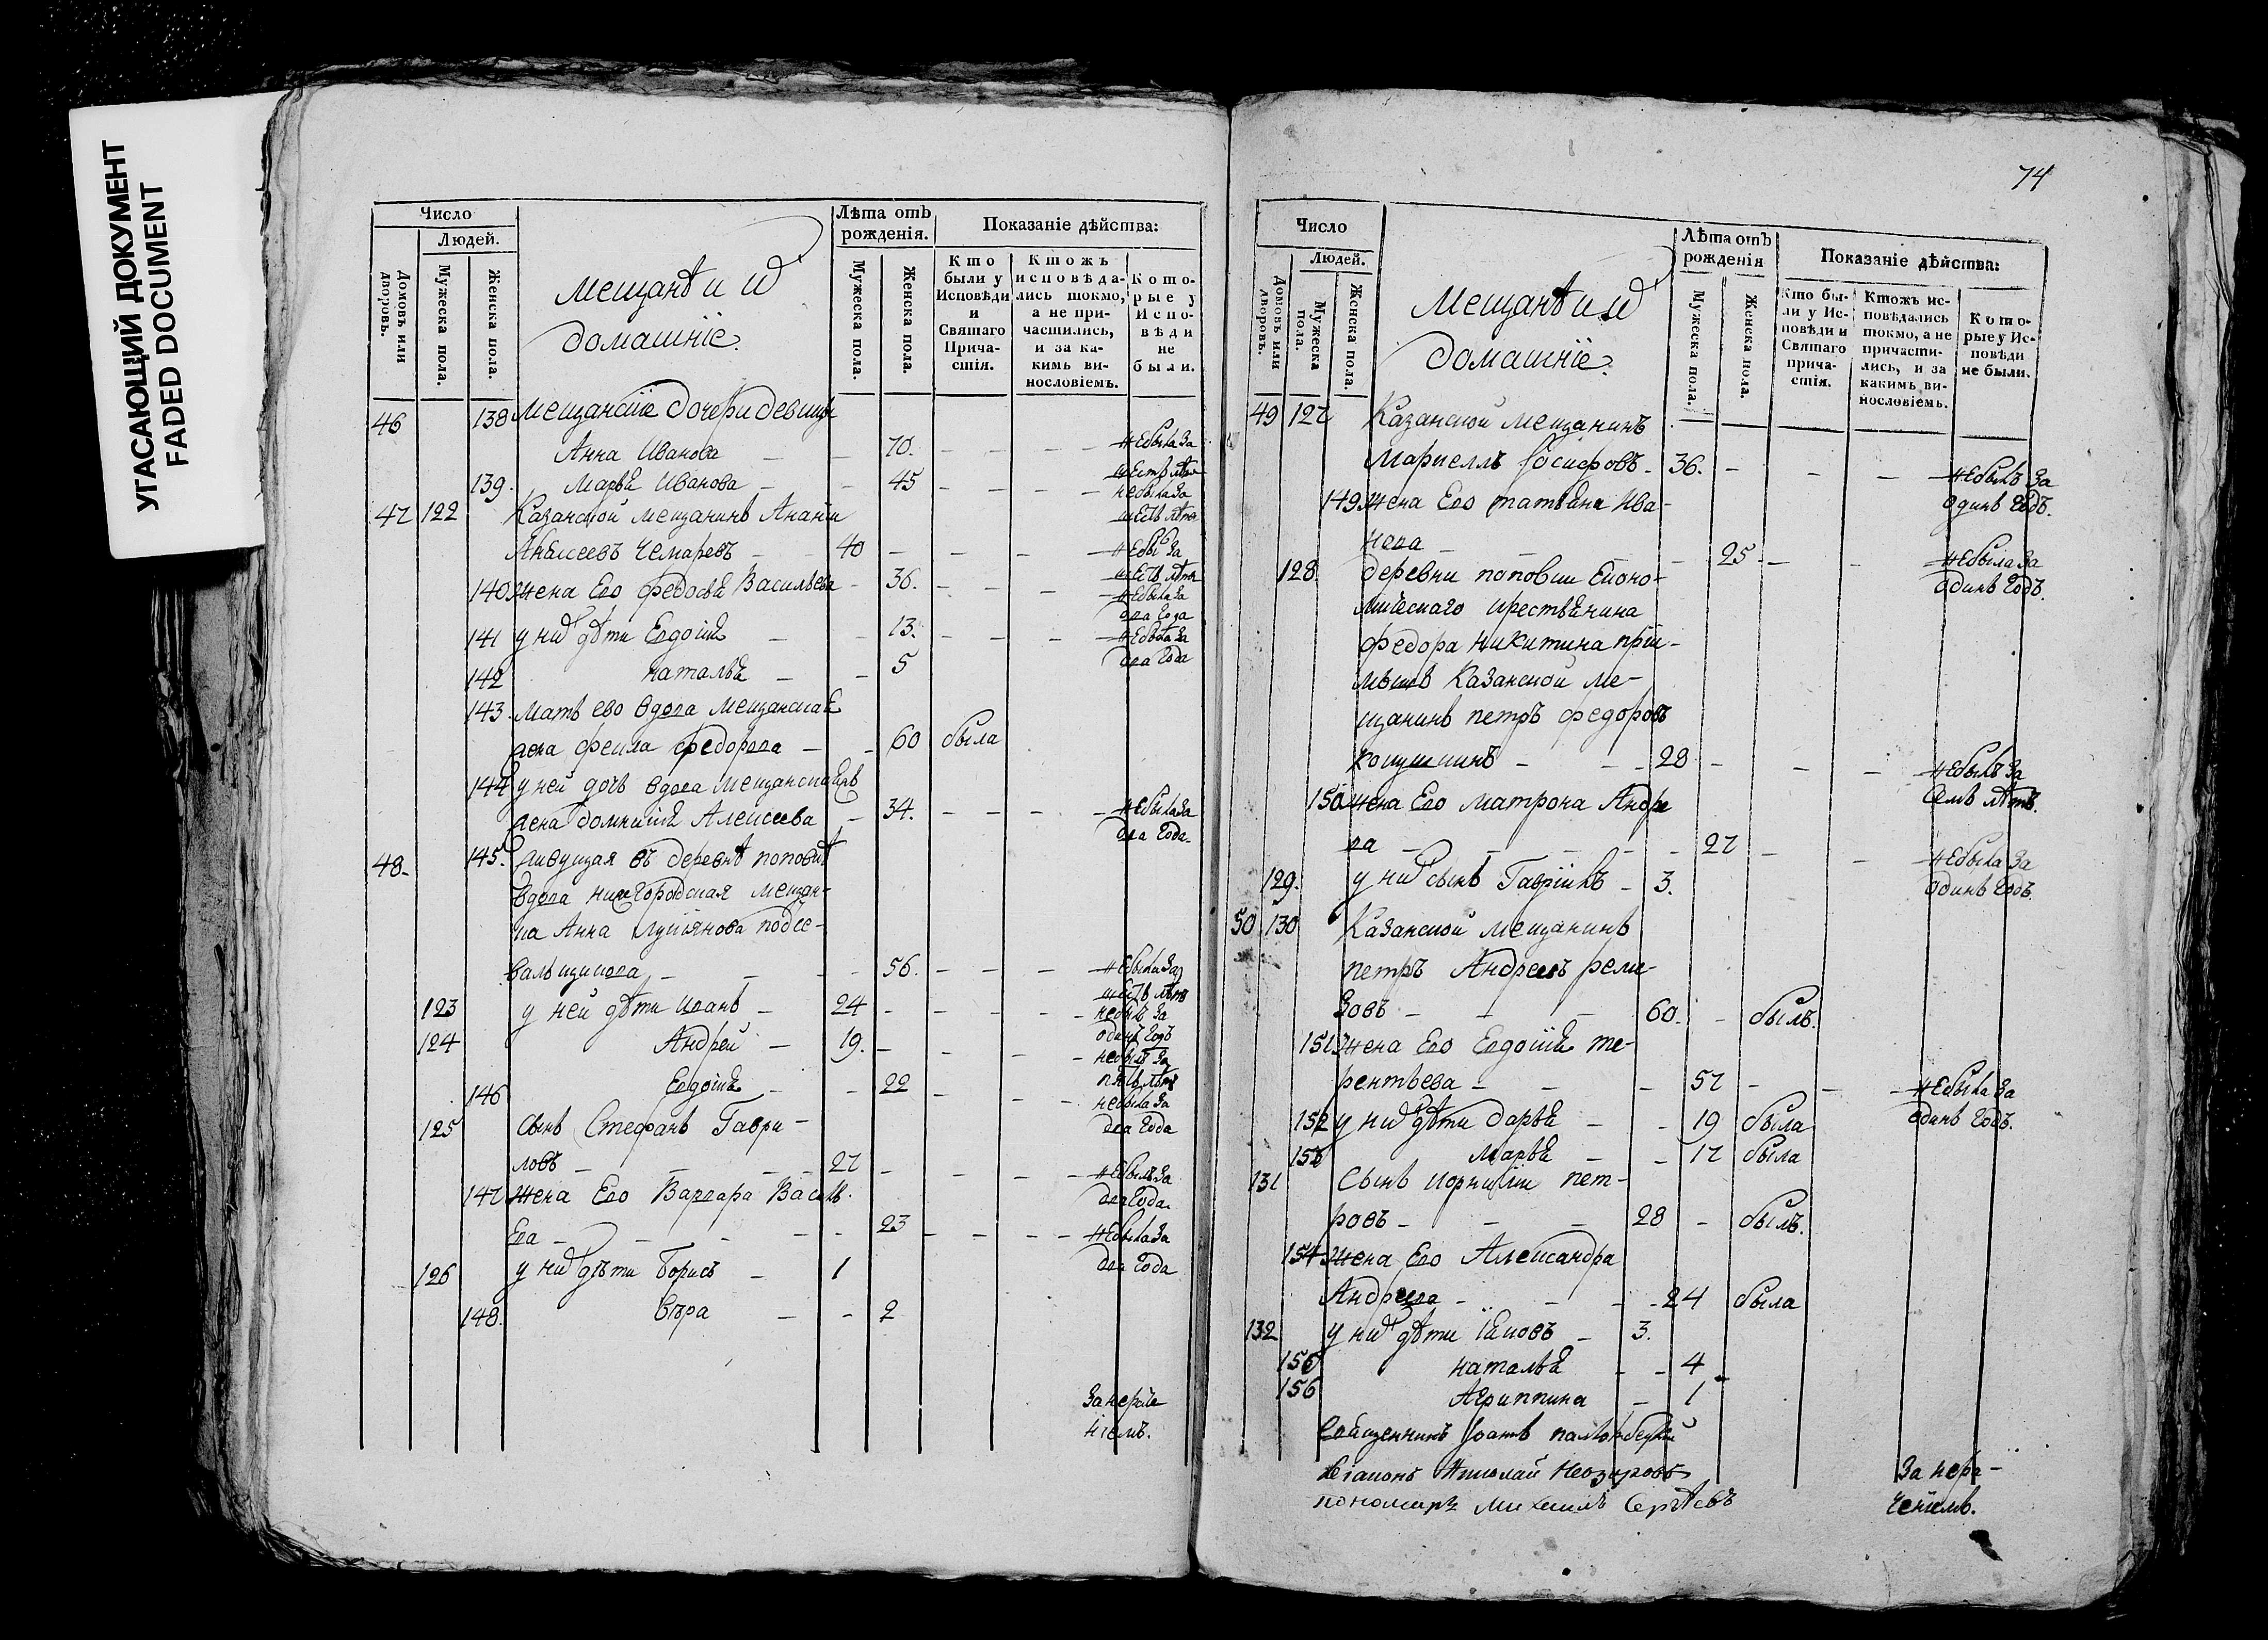 УГАСАЮЩИЙ ДОКУМЕНТ
FADED DOCUMENT
Число
Людей.
Домовъ или дворовъ.
Мужеска пола.
Женска пола.
Мещанѣ и ихъ
домашніе.
Лѣта отъ
рожденія.
Мужеска пола.
Женска пола.
Показаніе дѣйства:
Кто
были у
Исповѣди
и
Святаго
Прича-
стія.
Ктожъ
исповѣда-
лись токмо,
а не при-
частились,
и за ка-
кимъ ви-
нословіемъ.
Кото-
рые у
Испо-
вѣди
не
были.
46 138 мещанскіе дочери девицы
Анна Иванова 70. небыла за
шесть лѣтъ
139. Марья Иванова 45 небыла за
шесть лѣтъ
47 122 Казанской мещанинъ Ананiй
Алексеевъ Чемаревъ 40 небылъ за
шесть лѣтъ
140 жена Его Федосья Васильева 36. небыла за
два года
141 у нихъ дѣти Евдокія 13. небыла за
два года
142 наталья 5
143. мать ево вдова мещанская
жена фекла федорова 60 была
144 у ней дочь вдова мещанская
жена домникія Алексеева 34. небыла за
два года
48. 145. живущая въ деревнѣ поповкѣ
вдова нижегородская мещан-
ка Анна Лукіянова подсе-
вальщикова 56. небыла за
шесть лѣтъ
123 у ней дѣти иванъ 24 небылъ за
одинъ годъ
124 Андрей 19. небылъ за
пять лѣтъ
146 Евдокія 22 небыла за
два года
125 сынъ Стефанъ Гаври-
ловъ 27 небылъ за
два года.
147 жена Его Варвара Василь-
ева 23 небыла за
два года
126 у нихъ дѣти Борисъ 1
148. вѣра 2
За нераче-
ніемъ.
74
Число
Людей.
Домовъ или дворовъ.
Мужеска пола.
Женска пола.
Мещанѣ и ихъ
домашніе.
Лѣта отъ
рожденія
Мужеска пола.
Женска пола.
Показаніе дѣйства:
Кто бы-
ли у Ис-
повѣди и
Святаго
прича-
стія.
Ктожъ ис-
повѣдались
токмо, а не
причасти-
лись, и за
какимъ ви-
нословіемъ.
Кото-
рые у Ис-
повѣди
не были.
49 127 Казанской мещанинъ
Маркеллъ Іосифовъ 36. небылъ за
одинъ годъ.
149 жена Его татьяна Ива-
нова 25 небыла за
одинъ годъ.
128 деревни поповки Еконо-
мическаго крестьянина
федора никитина прій-
мышъ Казанской ме-
щанинъ петръ федоровъ
кокушкинъ 28 небылъ за
семь лѣтъ.
150 жена Его матрона Андре
ва 27 небыла за
одинъ годъ.
129. у нихъ сынъ Гавріилъ 3.
50 130 Казанской мещанинъ
петръ Андреевъ реми-
зовъ 60. былъ.
151 жена Его Евдокія те-
рентьева 57 небыла за
одинъ годъ.
152 у нихъ дѣти дарья 19 была
153 марья 17 была
131 Сынъ корнилій пет-
ровъ 28 былъ.
154 жена Его Александра
Андреева 24 была
132 у нихъ дѣти Іаковъ 3.
155 наталья 4
156 Агриппина 1
Священникъ Іоаннъ
діаконъ Николай
пономарь Михаилъ Сергѣевъ
За нера-
ченіемъ.